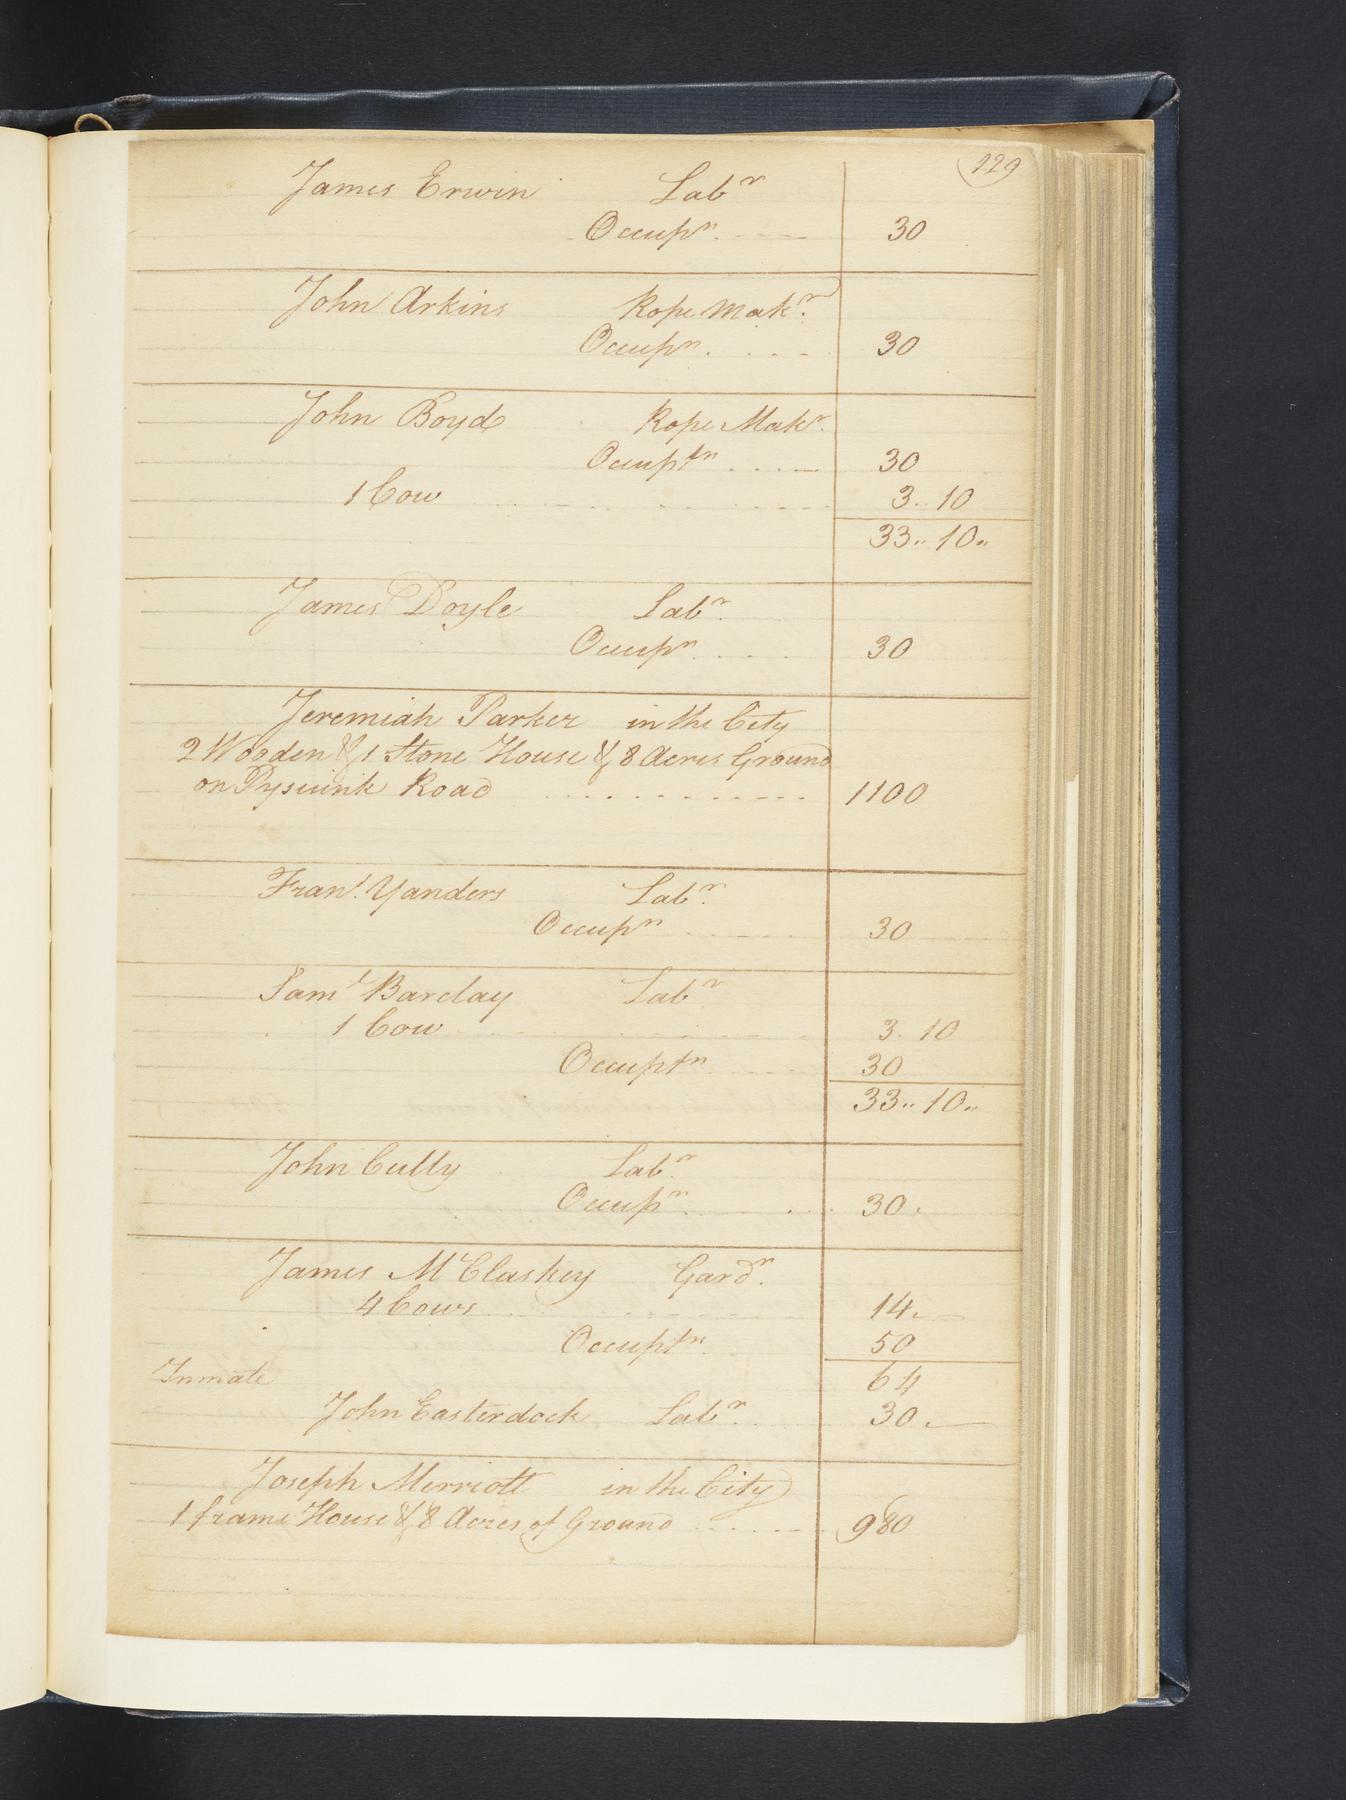 129
James Erwin Labr
Occupn. 30
John Arkins Rope Makr.
Occupn. 30
John Boyd Rope Makr.
Occuptn 30
1 Cow 3.. 10
33.. 10..
James Doyle Labr.
Occupn. 30
Jeremiah Parker in the City
2 Wooden & 1 Stone House & 8 Acres Ground
on Pysiunk Road 1100
Frans. Yanders Labr.
Occupn 30
Saml Barclay Labr
1 Cow 3. 10
Occuptn 30
33.. 10..
John Cully Labr.
Occupn. 30.
James McClaskey Gardr.
4 Cows 14.
Occuptn. 50
64
Inmate
John Easterdock Labr. 30.
Joseph Merriott in the City
1 frame House & 8 Acres of Ground 980